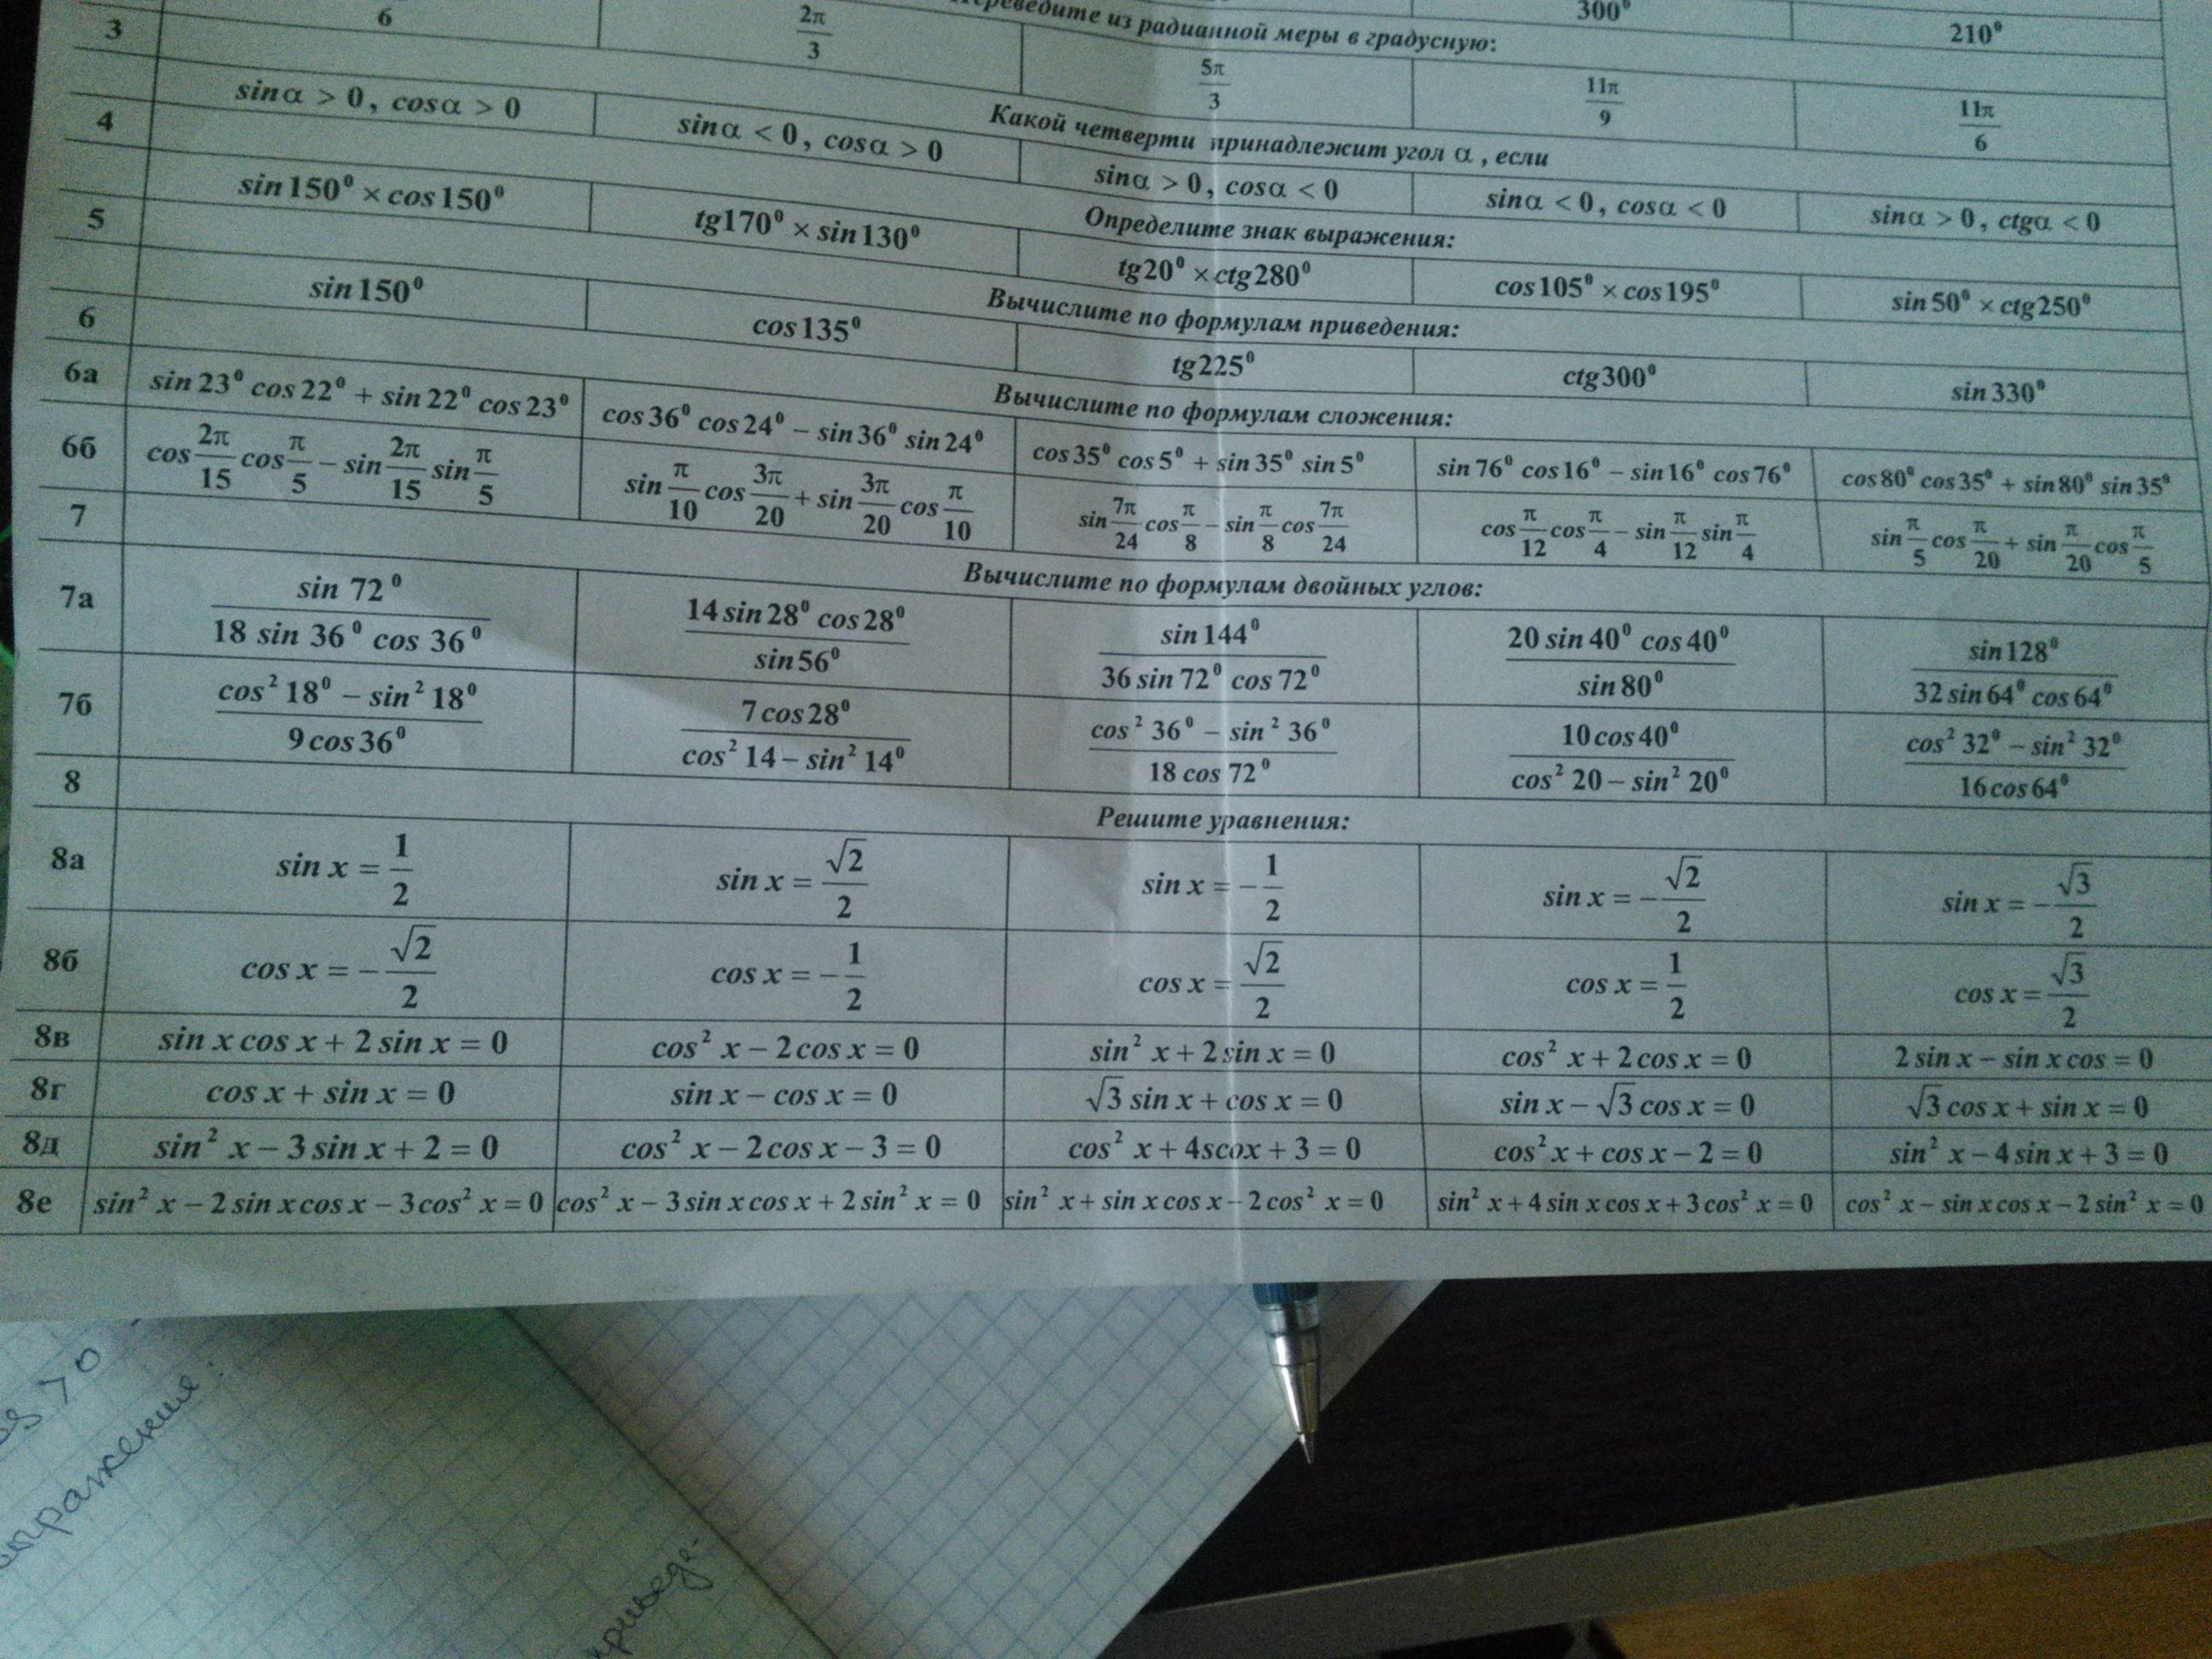 300⁰ 210⁰
Переведите из радианной меры в градусную:
3 6 2π/3 5π/3 11π/9 11π/6
Какой четверти принадлежит угол α, если
4 sinα > 0, cosα > 0 sinα < 0, cosα > 0 sinα > 0, cosα < 0 sinα < 0, cosα < 0 sinα > 0, ctgα < 0
Определите знак выражения:
5 sin150⁰ × cos150⁰ tg170⁰ × sin130⁰ tg20⁰ × ctg280⁰ cos105⁰ × cos195⁰ sin50⁰ × ctg250⁰
Вычислите по формулам приведения:
sin150⁰ cos135⁰ tg225⁰ ctg300⁰ sin330⁰
6 Вычислите по формулам сложения:
6а sin23⁰ cos22⁰ + sin22⁰ cos23⁰ cos36⁰ cos24⁰ − sin36⁰ sin24⁰ cos35⁰ cos5⁰ + sin35⁰ sin5⁰ sin76⁰ cos16⁰ − sin16⁰ cos76⁰ cos80⁰ cos35⁰ + sin80⁰ sin35⁰
6б cos 2π/15 cos π/5 − sin 2π/15 sin π/5 sin π/10 cos 3π/20 + sin 3π/20 cos π/10 sin 7π/24 cos π/8 − sin π/8 cos 7π/24 cos π/12 cos π/4 − sin π/12 sin π/4 sin π/5 cos π/20 + sin π/20 cos π/5
7 Вычислите по формулам двойных углов:
7а sin 72⁰/18 sin 36⁰ cos 36⁰ 14 sin28⁰ cos28⁰/sin56⁰ sin144⁰/36 sin72⁰ cos72⁰ 20 sin40⁰ cos40⁰/sin80⁰ sin128⁰/32 sin64⁰ cos64⁰
7б cos² 18⁰ − sin² 18⁰/9 cos36⁰ 7 cos28⁰/cos² 14 − sin² 14⁰ cos² 36⁰ − sin² 36⁰/18 cos 72⁰ 10 cos40⁰/cos² 20 − sin² 20⁰ cos² 32⁰ − sin² 32⁰/16 cos64⁰
8 Решите уравнения:
8а sin x = 1/2 sin x = √2/2 sin x = −1/2 sin x = −√2/2 sin x = −√3/2
8б cos x = −√2/2 cos x = −1/2 cos x = √2/2 cos x = 1/2 cos x = √3/2
8в sin x cos x + 2 sin x = 0 cos² x − 2 cos x = 0 sin² x + 2 sin x = 0 cos² x + 2 cos x = 0 2 sin x − sin x cos = 0
8г cos x + sin x = 0 sin x − cos x = 0 √3 sin x + cos x = 0 sin x − √3 cos x = 0 √3 cos x + sin x = 0
8д sin² x − 3 sin x + 2 = 0 cos² x − 2 cos x − 3 = 0 cos² x + 4scox + 3 = 0 cos² x + cos x − 2 = 0 sin² x − 4 sin x + 3 = 0
8е sin² x − 2 sin x cos x − 3 cos² x = 0 cos² x − 3 sin x cos x + 2 sin² x = 0 sin² x + sin x cos x − 2 cos² x = 0 sin² x + 4 sin x cos x + 3 cos² x = 0 cos² x − sin x cos x − 2 sin² x = 0
> 0
ыражение:
приведе-